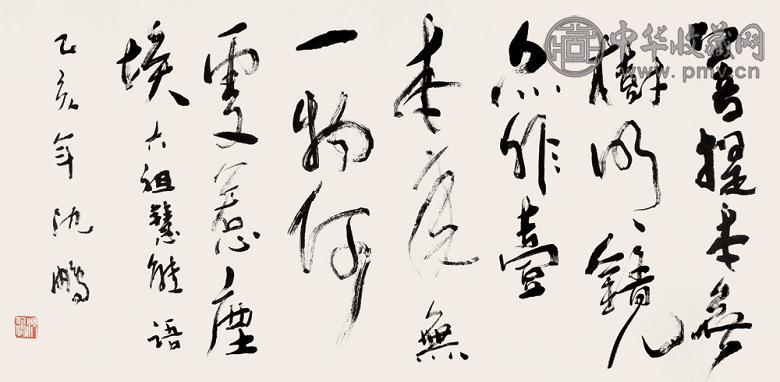 中华收藏网
www.pmv.cn
菩提本無
樹明鏡
亦非臺
本來無
一物何
處惹塵
埃六祖慧能語
乙亥年沈鵬